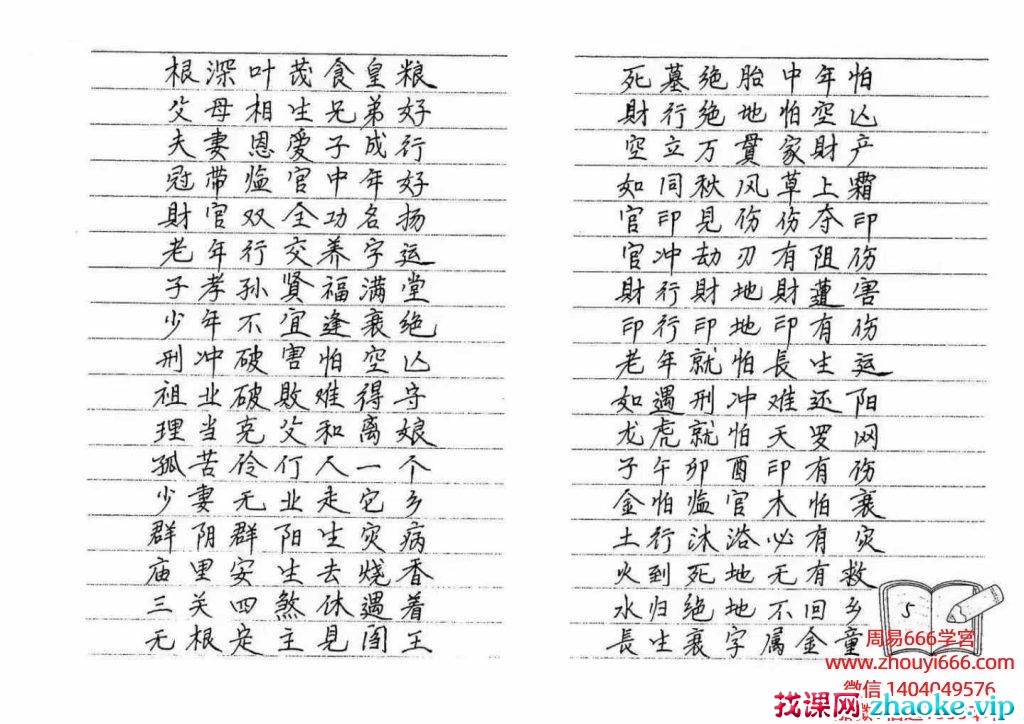 根深叶茂食皇粮
父母相生兄弟好
夫妻恩愛子成行
冠带临官中年好
財官双全功名扬
老年行交养字运
子孝孙贤福满堂
少年不宜逢衰绝
刑冲破害怕空亡
祖业破敗难得守
理当克父和离娘
孤苦伶仃人一个
少妻无业走它乡
群阴群阳生灾病
庙里安生去烧香
三关四煞休遇着
无根定主見阎王
死墓绝胎中年怕
財行绝地怕空亡
空立万貫家財产
如同秋风草上霜
官印見伤伤夺印
官冲劫刃有阻伤
財行財地財遭害
印行印地印有伤
老年就怕長生运
如遇刑冲难还阳
龙虎就怕天罗网
子午卯酉印有伤
金怕临官木怕衰
土行沐浴必有灾
火到死地无有救
水归绝地不回乡
長生衰字属金童
5
周易666学宫
www.zhouyi666.com
微信 1404049576
找课网zhaoke.vip